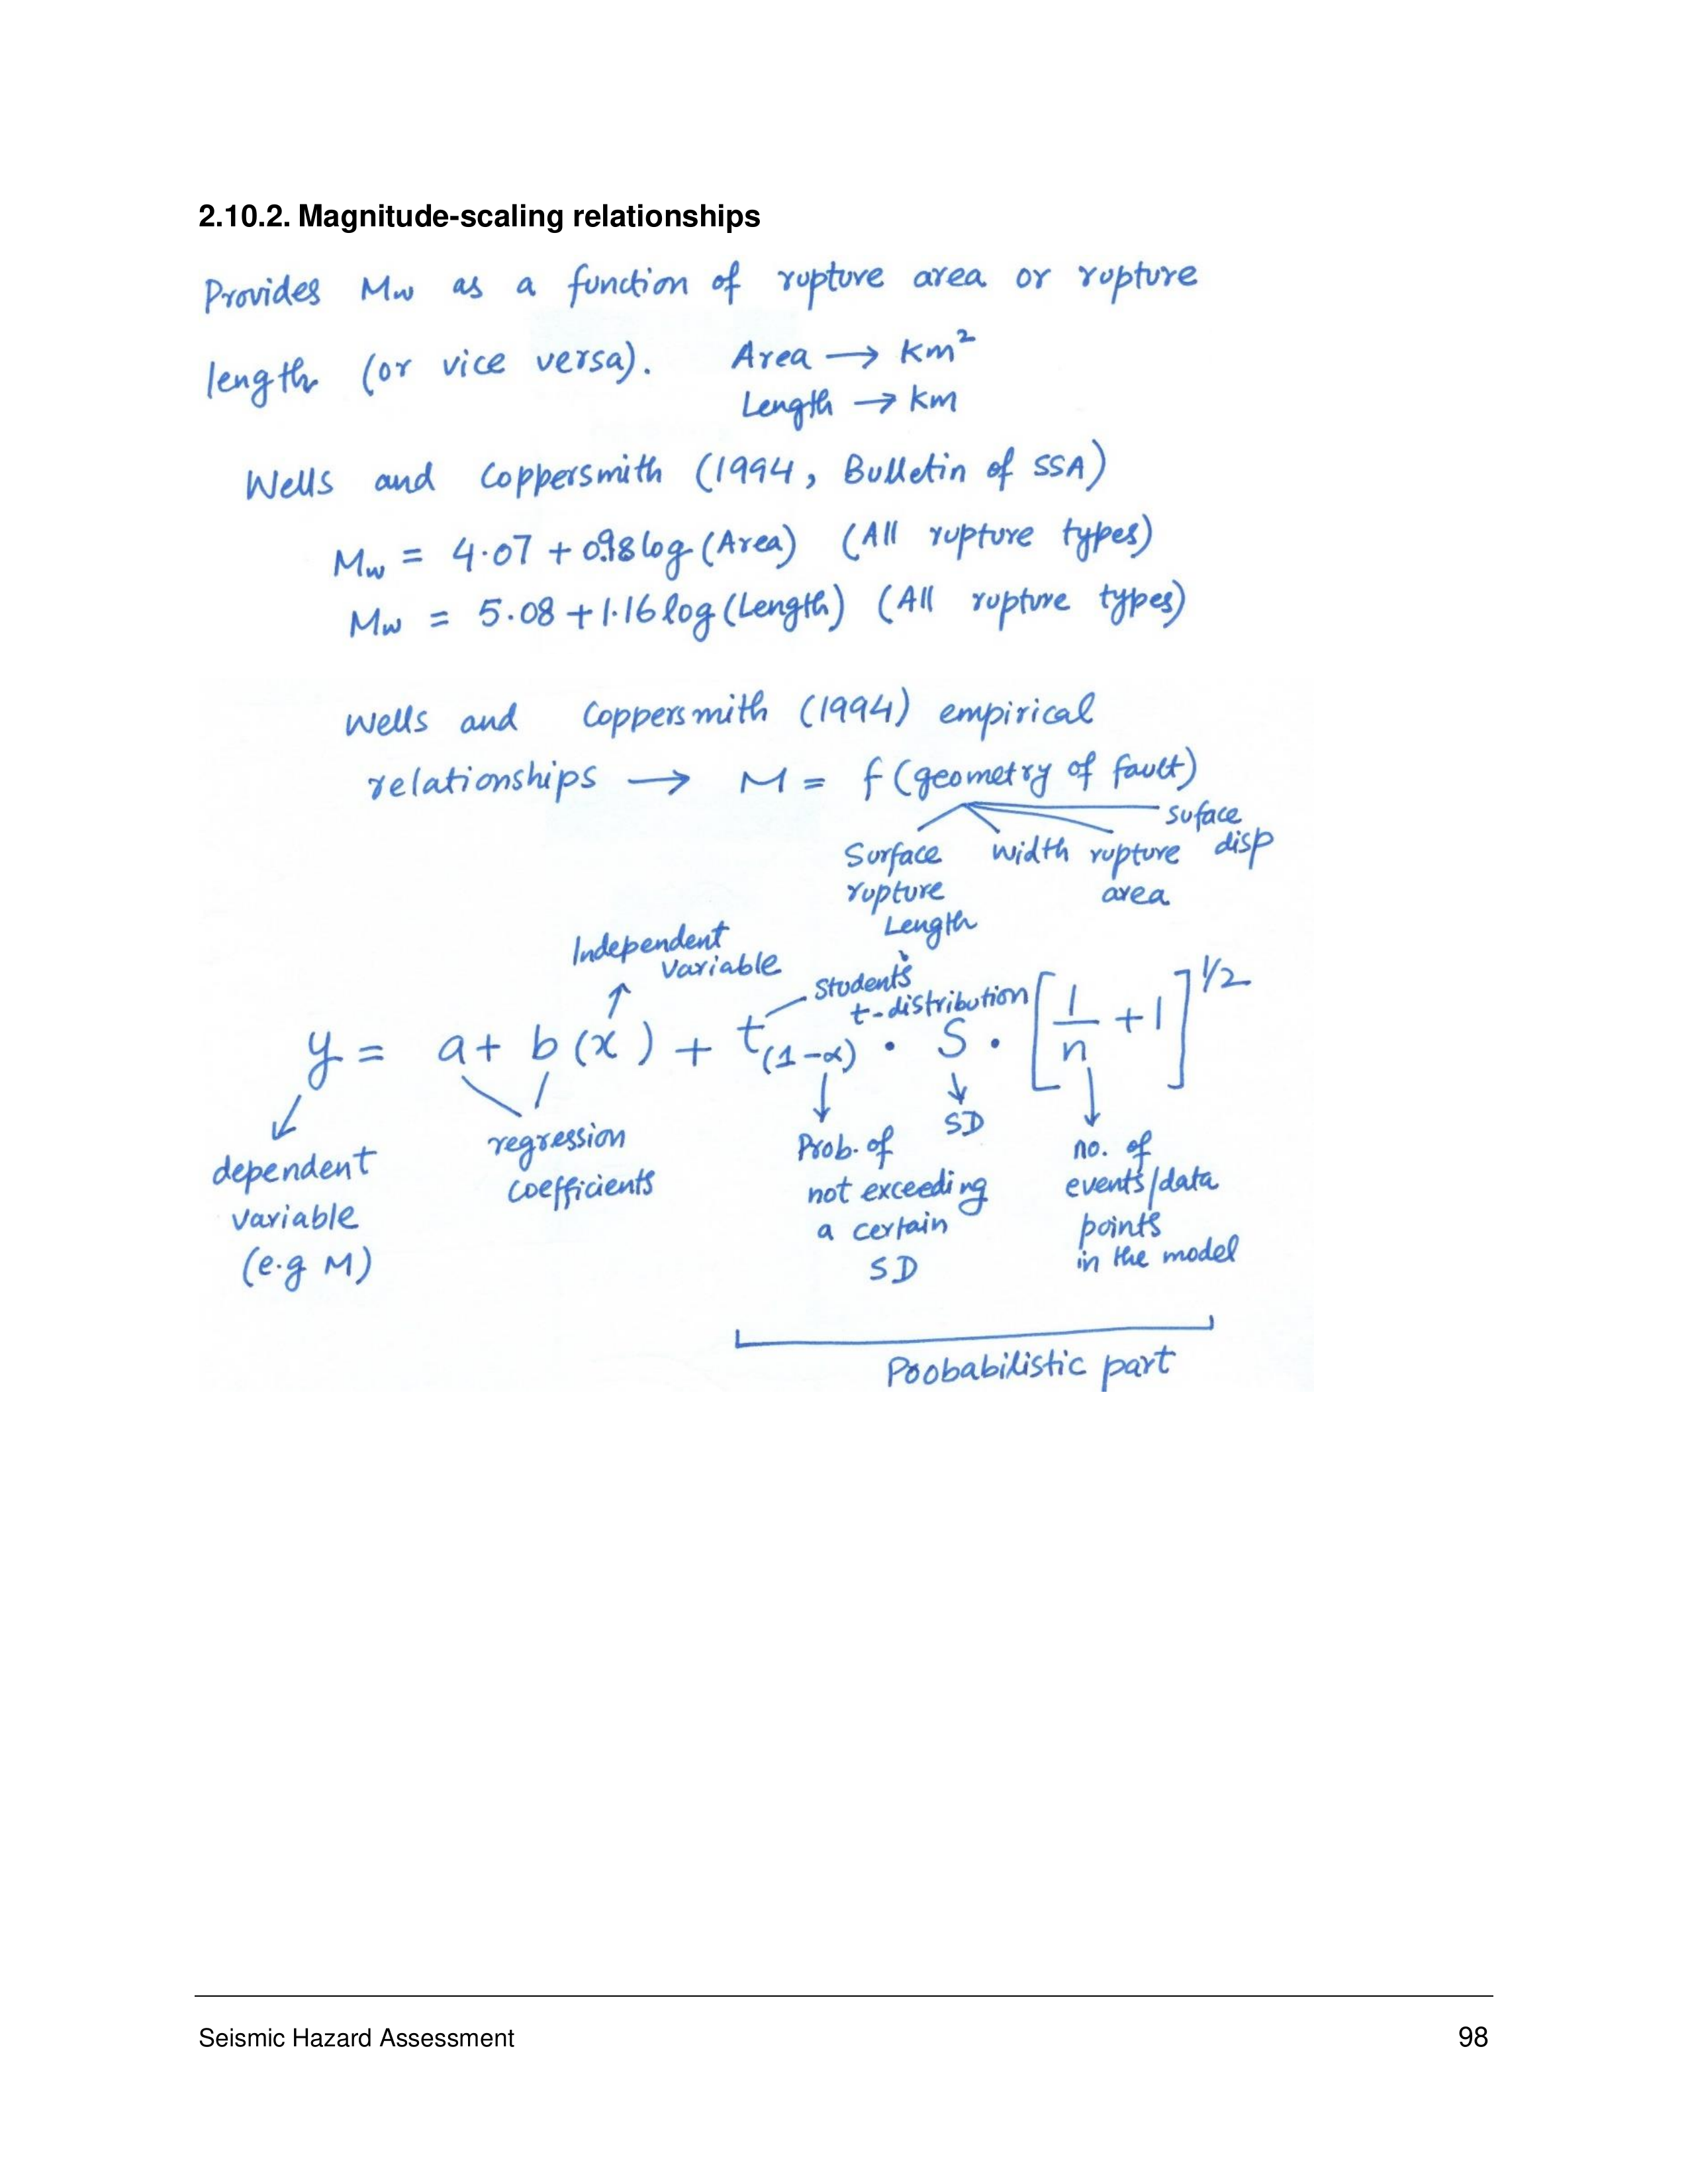 2.10.2. Magnitude-scaling relationships
Provides Mw as a function of rupture area or rupture
length (or vice versa). Area → km²
Length → km
Wells and Coppersmith (1994, Bulletin of SSA)
Mw = 4.07 + 0.98 log (Area) (All rupture types)
Mw = 5.08 + 1.16 log (Length) (All rupture types)
Wells and Coppersmith (1994) empirical
relationships → M = f (geometry of fault)
Surface rupture Length
width
rupture area
suface disp
Independent Variable
Student's t-distribution
y = a + b (x) + t(1-α) · S · [1/n + 1]^1/2
dependent variable (e.g M)
regression coefficients
Prob. of not exceeding a certain SD
SD
no. of events/data points in the model
Probabilistic part
Seismic Hazard Assessment 98